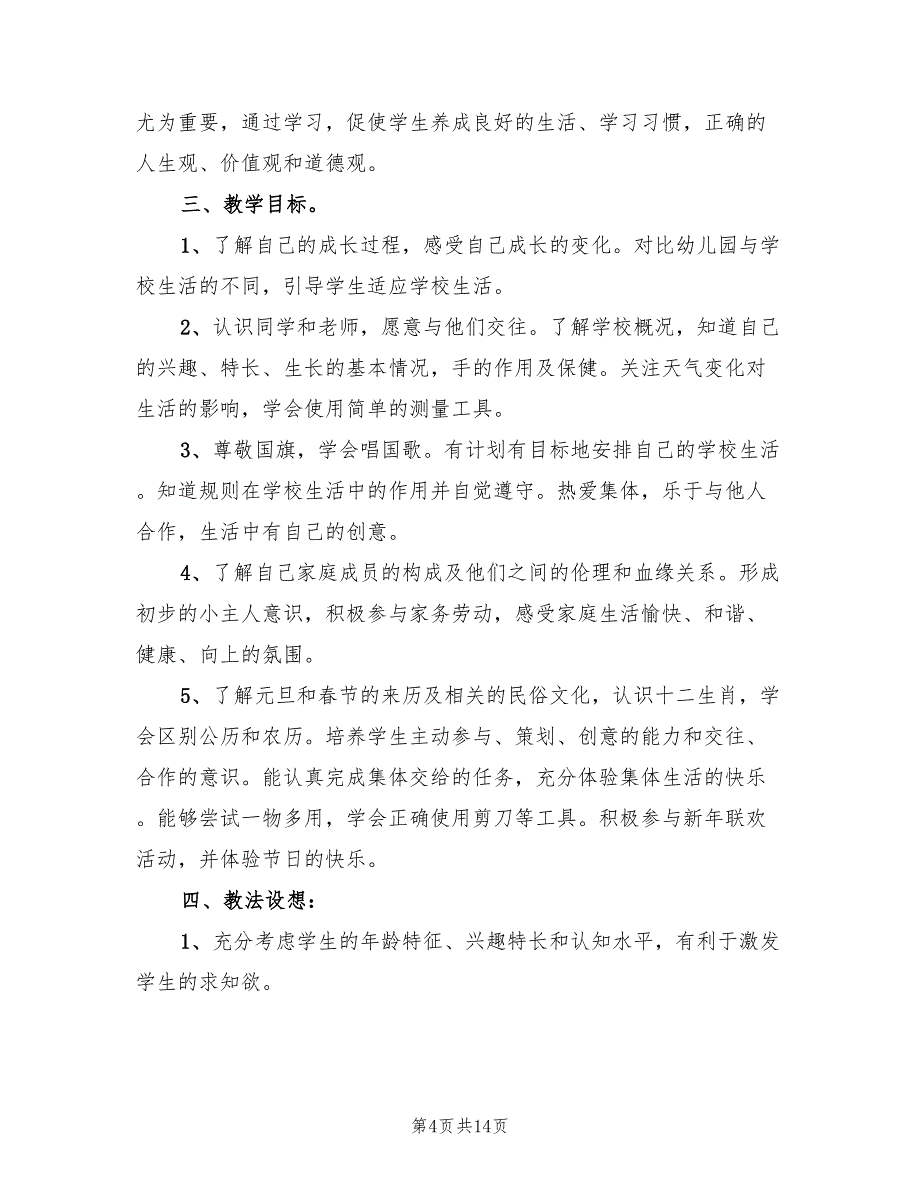 尤为重要，通过学习，促使学生养成良好的生活、学习习惯，正确的
人生观、价值观和道德观。
三、教学目标。
1、了解自己的成长过程，感受自己成长的变化。对比幼儿园与学
校生活的不同，引导学生适应学校生活。
2、认识同学和老师，愿意与他们交往。了解学校概况，知道自己
的兴趣、特长、生长的基本情况，手的作用及保健。关注天气变化对
生活的影响，学会使用简单的测量工具。
3、尊敬国旗，学会唱国歌。有计划有目标地安排自己的学校生活
。知道规则在学校生活中的作用并自觉遵守。热爱集体，乐于与他人
合作，生活中有自己的创意。
4、了解自己家庭成员的构成及他们之间的伦理和血缘关系。形成
初步的小主人意识，积极参与家务劳动，感受家庭生活愉快、和谐、
健康、向上的氛围。
5、了解元旦和春节的来历及相关的民俗文化，认识十二生肖，学
会区别公历和农历。培养学生主动参与、策划、创意的能力和交往、
合作的意识。能认真完成集体交给的任务，充分体验集体生活的快乐
。能够尝试一物多用，学会正确使用剪刀等工具。积极参与新年联欢
活动，并体验节日的快乐。
四、教法设想：
1、充分考虑学生的年龄特征、兴趣特长和认知水平，有利于激发
学生的求知欲。
第4页共14页